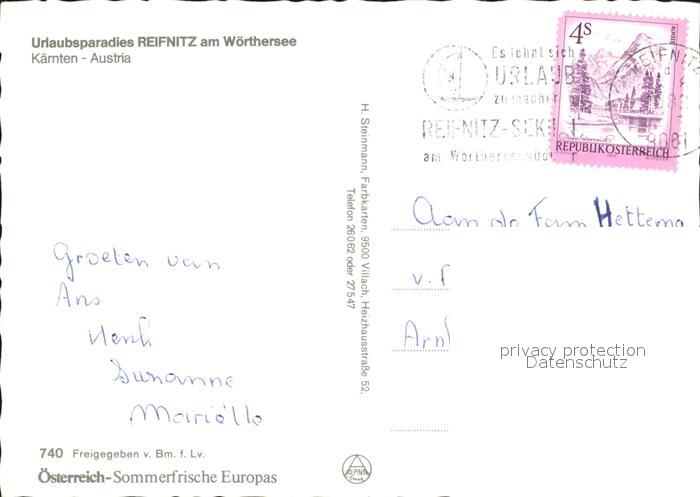 Urlaubsparadies REIFNITZ am Wörthersee
Kärnten - Austria
4S
ALMSEE
REPUBLIK ÖSTERREICH
Es lohnt sich
URLAUB
zu machen
REIFNITZ-SEK
am Wörthersee süd
REIFNITZ
9081
H. Steinmann, Farbkarten, 9500 Villach, Heizhausstraße 52,
Telefon 26062 oder 27547
Aan de Fam Hettema
v.
Groeten van
Ans
Henk
Suzanne
Mariëlle
privacy protection
Datenschutz
740 Freigegeben v. Bm. f. Lv.
Österreich-Sommerfrische Europas
ALPINA
Druck